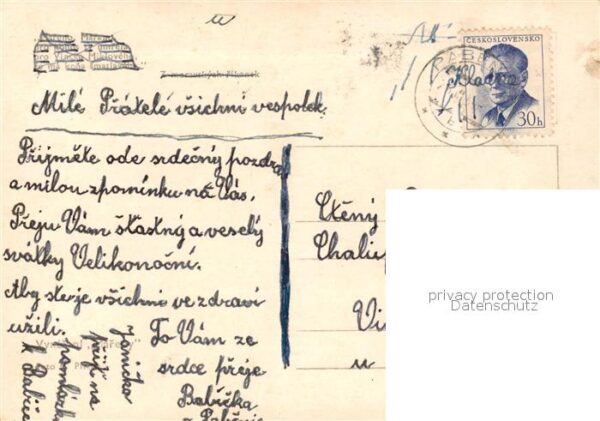 Milé Přátelé všichni vespolek.
Přijměte ode srdečný pozdra
a milou zpomínku na Vás.
Přeju Vám štastný a veselý
svátky Velikonoční.
Aby ste je všichni ve zdraví
užili.
To Vám ze
srdce přeje
Babička
Jenička
přijď na
pomlázku
k Babič
Ctěný
Chalu
Vi
u
ČESKOSLOVENSKO
30h
privacy protection
Datenschutz